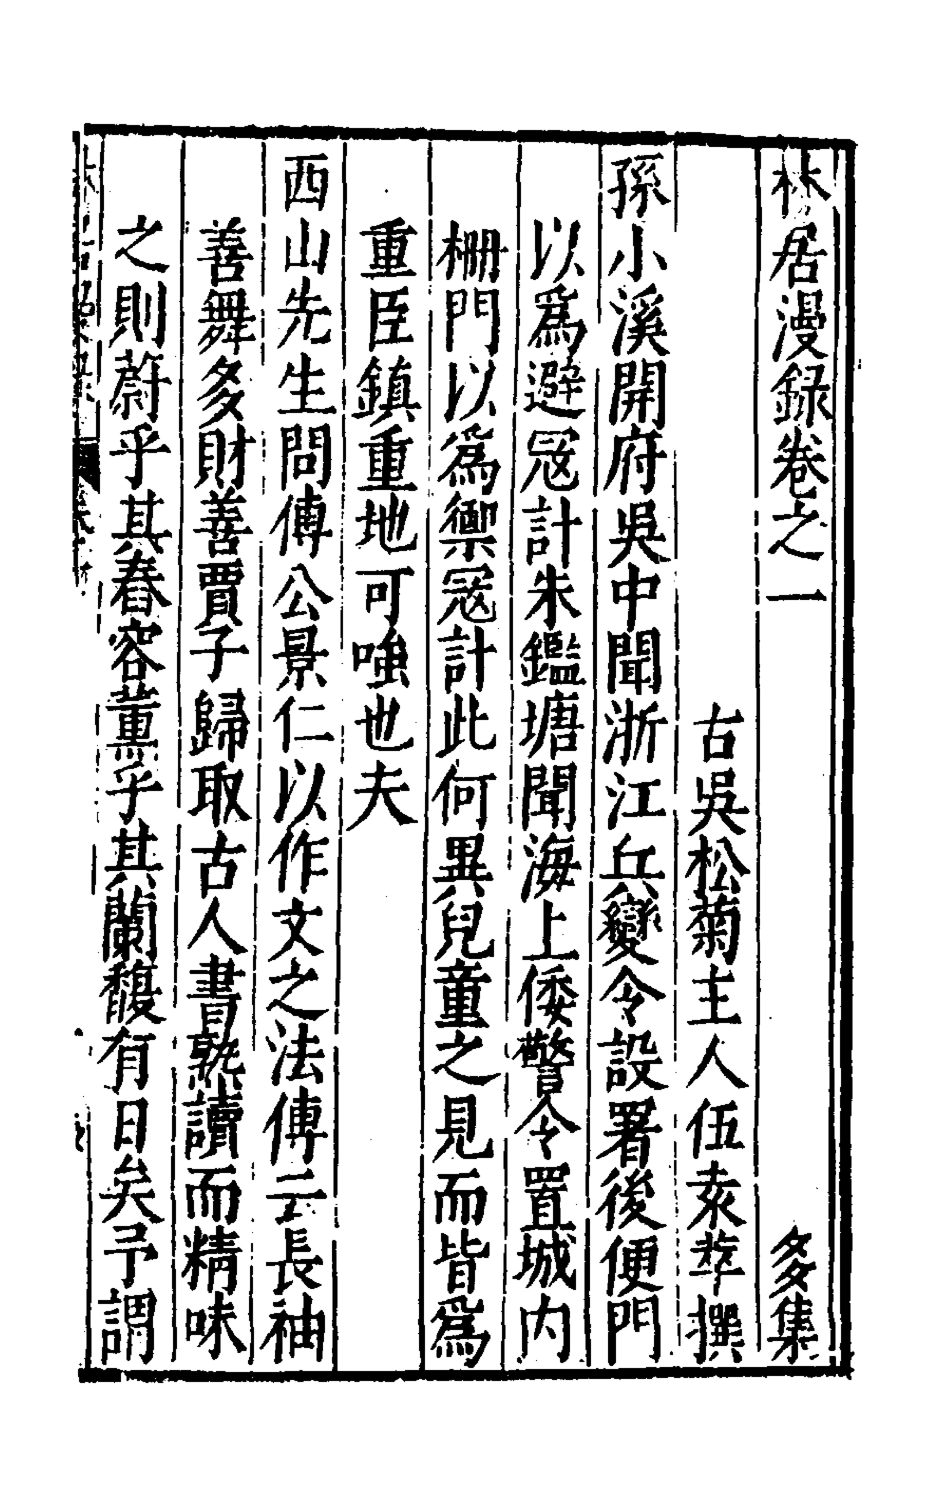 林居漫録卷之一 多集
古吳松菊主人伍袁萃撰
孫小溪開府吳中聞浙江兵變令設署後便門
以爲避冦計朱鑑塘聞海上倭警令置城內
柵門以爲禦冦計此何異兒童之見而皆爲
重臣鎮重地可嗤也夫
西山先生問傅公景仁以作文之法傅云長袖
善舞多財善賈子歸取古人書熟讀而精味
之則蔚乎其春容薰乎其蘭馥有日矣予謂